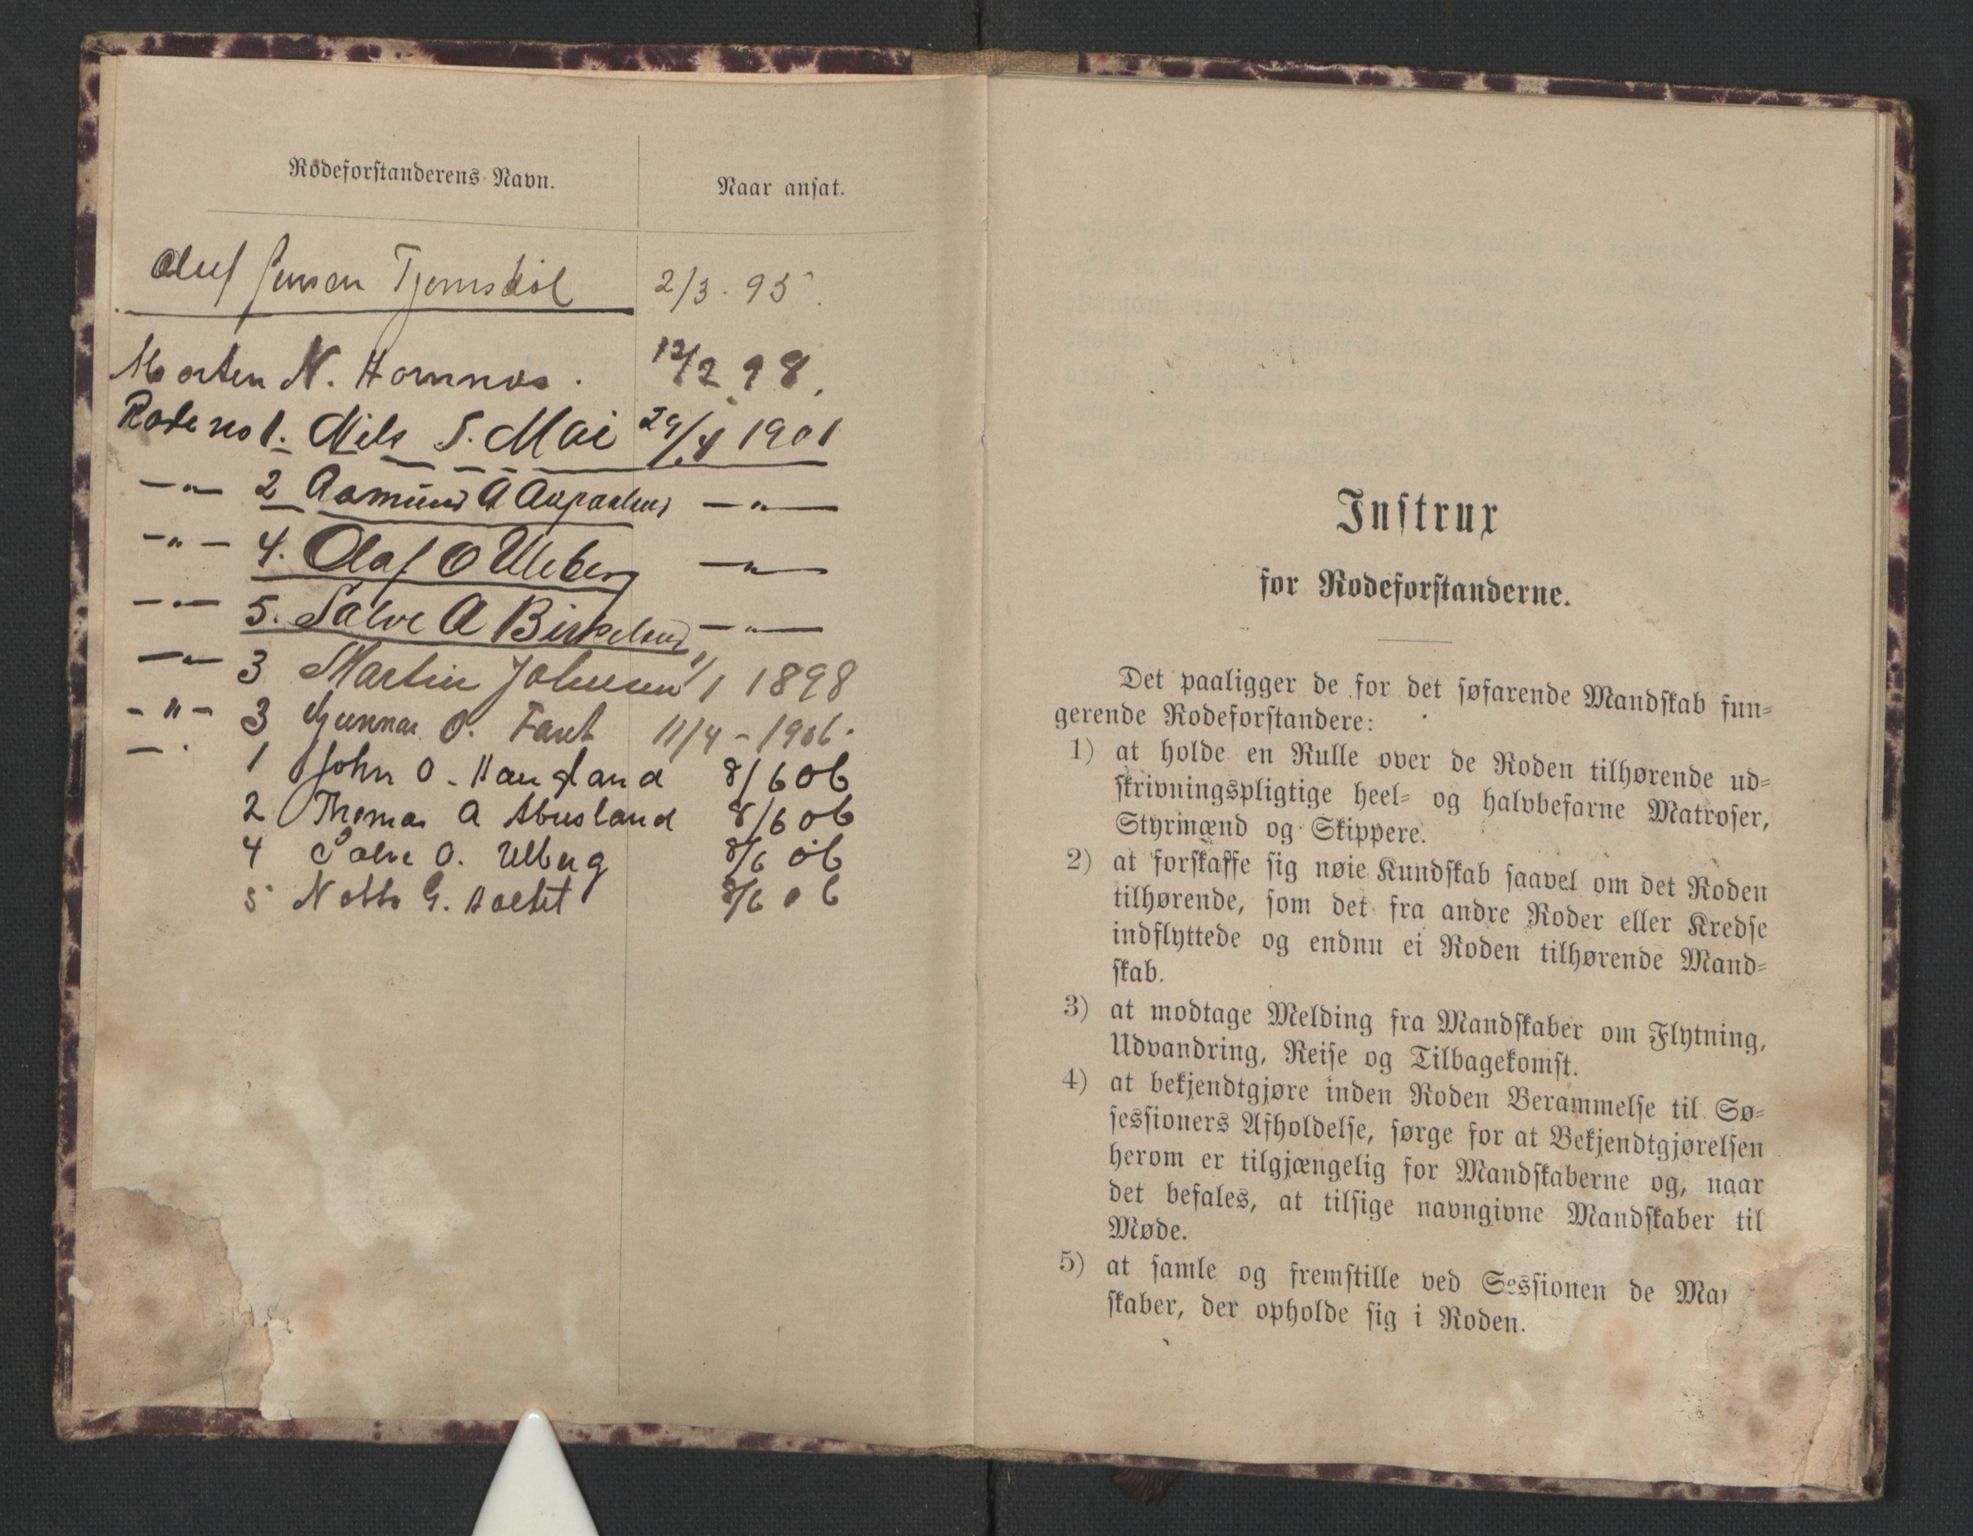 Rodeforstanderens Navn. Naar ansat.
Oluf Jensen Tjomsdøl 2/3. 95.
Morten N. Hornnes. 12/2 98.
Rode no 1. Nils S. Mai 29/4 1901
—"— 2 Aasmund A —"—
—"— 4. Olaf O Uleberg —"—
—"— 5. Salve A Birkeland —"—
—"— 3 Martin Johnsen 1/1 1898
—"— 3 Gunnar O. Faret 11/4 - 1906.
— . 1 John O. Haugland 8/6 06
2 Thomas A Abusland 8/6 06
4 Salve O. Ulberg 8/6 06
5 Notto G. 8/6 06
Instrux
for Rodeforstanderne.
Det paaligger de for det søfarende Mandskab fun-
gerende Rodeforstandere:
1) at holde en Rulle over de Roden tilhørende ud-
skrivningspligtige heel- og halvbefarne Matroser,
Styrmænd og Skippere.
2) at forskaffe sig nøie Kundskab saavel om det Roden
tilhørende, som det fra andre Roder eller Kredse
indflyttede og endnu ei Roden tilhørende Mand-
skab.
3) at modtage Melding fra Mandskaber om Flytning,
Udvandring, Reise og Tilbagekomst.
4) at bekjendtgjøre inden Roden Berammelse til Sø-
sessioners Afholdelse, sørge for at Bekjendtgjørelsen
herom er tilgjængelig for Mandskaberne og, naar
det befales, at tilsige navngivne Mandskaber til
Møde.
5) at samle og fremstille ved Sessionen de Man
skaber, der opholde sig i Roden.